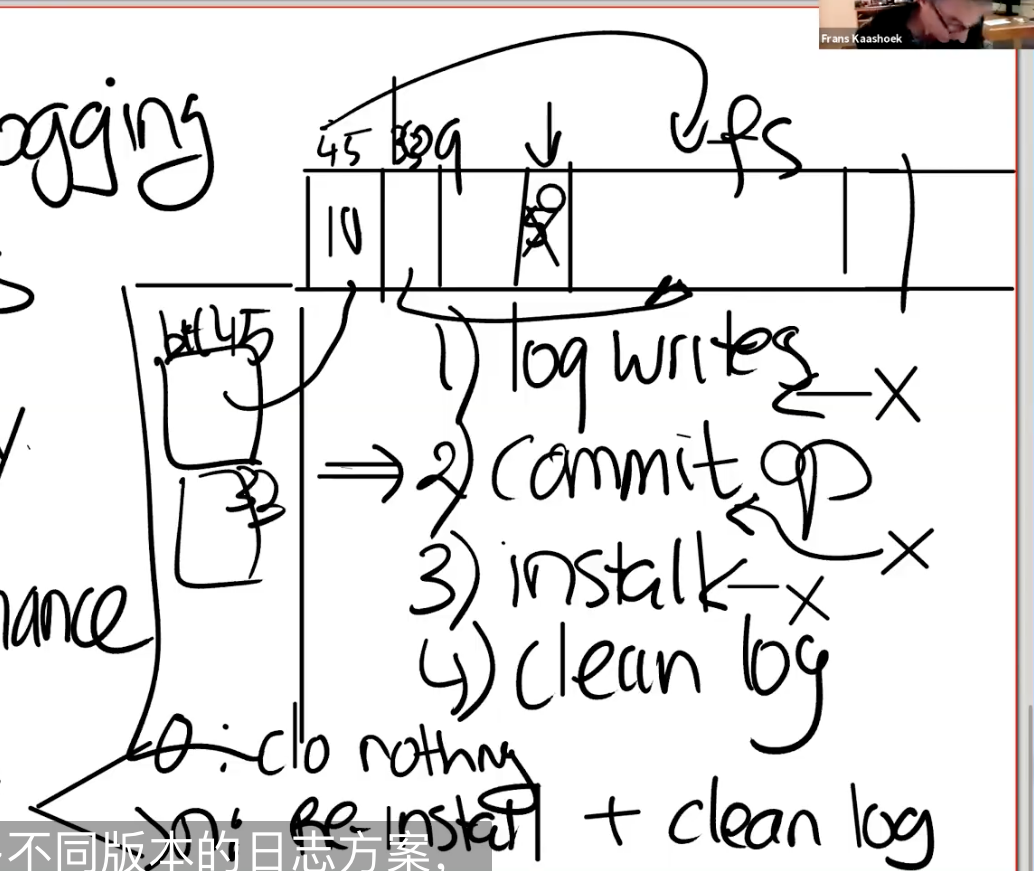 Frans Kaashoek
ogging
45 log fs
10
bit 45
33
1) log writes ← X
⇒ 2) commit op
X
3) install ← X
4) clean log
nance
0: do nothing
>n: Re-install + clean log
不同版本的日志方案,